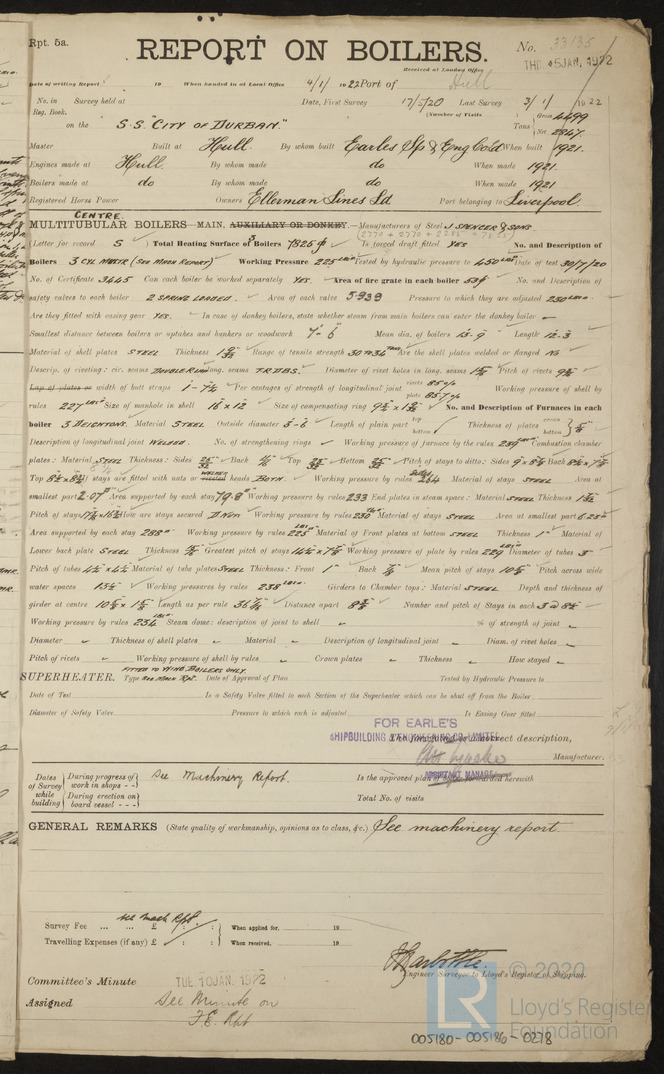 Rpt. 5a.
REPORT ON BOILERS.
No. 33135
Received at London Office THU 5 JAN. 1922
Date of writing Report 19 When handed in at Local Office 4/1/1922 Port of Hull
No. in Survey held at Date, First Survey 17/5/20 Last Survey 3/1/1922
Reg. Book. (Number of Visits
on the S.S. "CITY OF DURBAN." Tons Gross 4499 Net 2847
Master Built at Hull By whom built Earles Sp & Eng Co Ld When built 1921.
Engines made at Hull. By whom made do When made 1921.
Boilers made at do By whom made do When made 1921
Registered Horse Power Owners Ellerman Lines Ld Port belonging to Liverpool.
CENTRE.
MULTITUBULAR BOILERS - MAIN, AUXILIARY OR DONKEY. - Manufacturers of Steel J SPENCER & SONS.
(Letter for record S) Total Heating Surface of 3 Boilers 7825 Is forced draft fitted YES No. and Description of
Boilers 3 CYL MULTR (SEE MCHN REPORT) Working Pressure 225 LBS Tested by hydraulic pressure to 450 LBS Date of test 30/7/20
No. of Certificate 3445 Can each boiler be worked separately YES. Area of fire grate in each boiler No. and Description of
safety valves to each boiler 2 SPRING LOADED. Area of each valve 5.939 Pressure to which they are adjusted 230 LBS.
Are they fitted with easing gear YES. In case of donkey boilers, state whether steam from main boilers can enter the donkey boiler -
Smallest distance between boilers or uptakes and bunkers or woodwork 7'- 6" Mean dia. of boilers 13.9 Length 12.3
Material of shell plates STEEL Thickness Range of tensile strength 30 TO 34 TONS Are the shell plates welded or flanged NO
Descrip. of riveting: cir. seams DOUBLE RIV long. seams T.R.D.B.S. Diameter of rivet holes in long. seams Pitch of rivets
Lap of plates or width of butt straps Per centages of strength of longitudinal joint rivets 85 % plate 85.7 % Working pressure of shell by
rules 227 LBS Size of manhole in shell 16 x 12 Size of compensating ring No. and Description of Furnaces in each
boiler 3 DEIGHTONS. Material STEEL Outside diameter 3-6 Length of plain part top bottom Thickness of plates crown bottom
Description of longitudinal joint WELDED. No. of strengthening rings Working pressure of furnace by the rules 239 Combustion chamber
plates: Material STEEL Thickness: Sides 25/32 Back Top 25/32 Bottom 25/32 Pitch of stays to ditto: Sides Back
Top If stays are fitted with nuts or riveted heads BOTH. Working pressure by rules 264 Material of stays STEEL Area at
smallest part 2.07 Area supported by each stay 79.8 Working pressure by rules 233 End plates in steam space: Material STEEL Thickness
Pitch of stays How are stays secured D.NUTS Working pressure by rules 230 Material of stays STEEL Area at smallest part 6.25
Area supported by each stay 288 Working pressure by rules 225 LBS Material of Front plates at bottom STEEL Thickness 1" Material of
Lower back plate STEEL Thickness Greatest pitch of stays Working pressure of plate by rules 229 Diameter of tubes 3
Pitch of tubes Material of tube plates STEEL Thickness: Front 1" Back Mean pitch of stays Pitch across wide
water spaces Working pressures by rules 238 LBS. Girders to Chamber tops: Material STEEL Depth and thickness of
girder at centre Length as per rule Distance apart Number and pitch of Stays in each
Working pressure by rules 234 LBS Steam dome: description of joint to shell % of strength of joint
Diameter Thickness of shell plates Material Description of longitudinal joint Diam. of rivet holes
Pitch of rivets Working pressure of shell by rules Crown plates Thickness How stayed
FITTED TO WING BOILERS ONLY.
SUPERHEATER. Type See Mach Rpt. Date of Approval of Plan Tested by Hydraulic Pressure to
Date of Test Is a Safety Valve fitted to each Section of the Superheater which can be shut off from the Boiler
Diameter of Safety Valve Pressure to which each is adjusted Is Easing Gear fitted
FOR EARLE'S
SHIPBUILDING & ENGINEERING CO. LIMITED
The foregoing is a correct description,
Manufacturer.
ASSISTANT MANAGER
Dates of Survey while building
During progress of work in shops - -
During erection on board vessel - - -
See Machinery Report.
Is the approved plan of boiler forwarded herewith
Total No. of visits
GENERAL REMARKS (State quality of workmanship, opinions as to class, &c.) See machinery report
Survey Fee ... ... £ see Mach Rpt. When applied for, 19
Travelling Expenses (if any) £ When received, 19
Engineer Surveyor to Lloyd's Register of Shipping.
Committee's Minute TUE 10 JAN. 1922
Assigned See Minute on
F.E. Rpt
© 2020
LR
Lloyd's Register
Foundation
005180-005186-0278